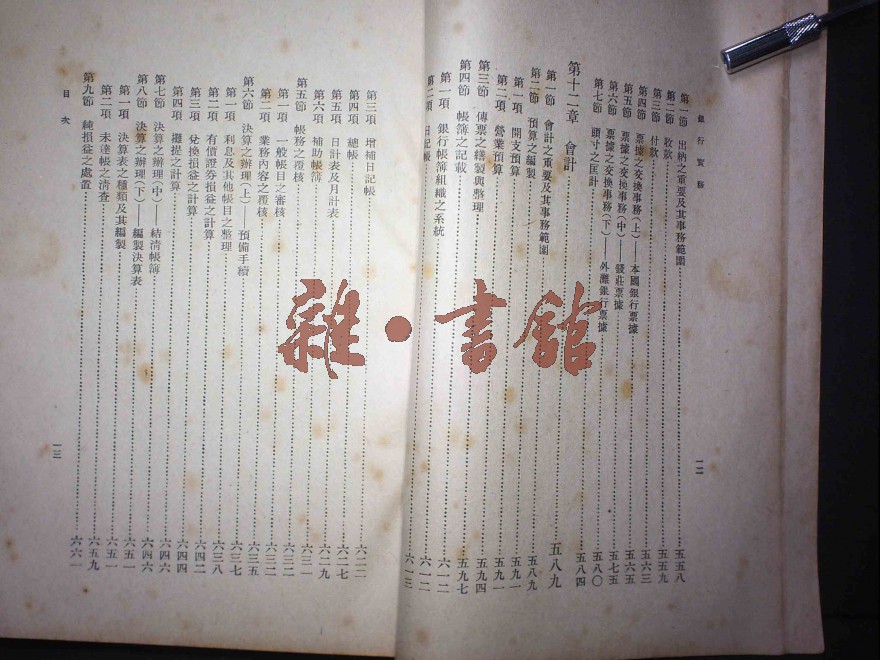 銀行實務
第一節 出納之重要及其事務範圍 五五八
第二節 收款 五五九
第三節 付款 五六三
第四節 票據之交換事務(上)——本國銀行票據 五六五
第五節 票據之交換事務(中)——錢莊票據 五七五
第六節 票據之交換事務(下)——外灘銀行票據 五八〇
第七節 頭寸之匡計 五八四
第十二章 會計 五八九
第一節 會計之重要及其事務範圍 五八九
第二節 預算之編製 五八九
第一項 開支預算 五九一
第二項 營業預算 五九一
第三節 傳票之繕製與整理 五九四
第四節 帳簿之記載 五九七
第一項 銀行帳簿組織之系統 六一二
第二項 日記帳 六一三
一二
第三項 增補日記帳 六二二
第四項 總帳 六二七
第五項 日計表及月計表 六二九
第六項 補助帳簿 六三一
第五節 帳務之覆核 六三二
第一項 一般帳目之審核 六三二
第二項 業務內容之覆核 六三五
第六節 決算之辦理(上)——預備手續 六三七
第一項 利息及其他帳目之整理 六三八
第二項 有價證券損益之計算 六四二
第三項 兌換損益之計算 六四四
第四項 攤提之計算 六四六
第七節 決算之辦理(中)——結清帳簿 六四六
第八節 決算之辦理(下)——編製決算表 六五一
第一項 決算表之種類及其編製 六五一
第二項 未達帳之清查 六五九
第九節 純損益之處置 六六一
目次
一三
雜·書館